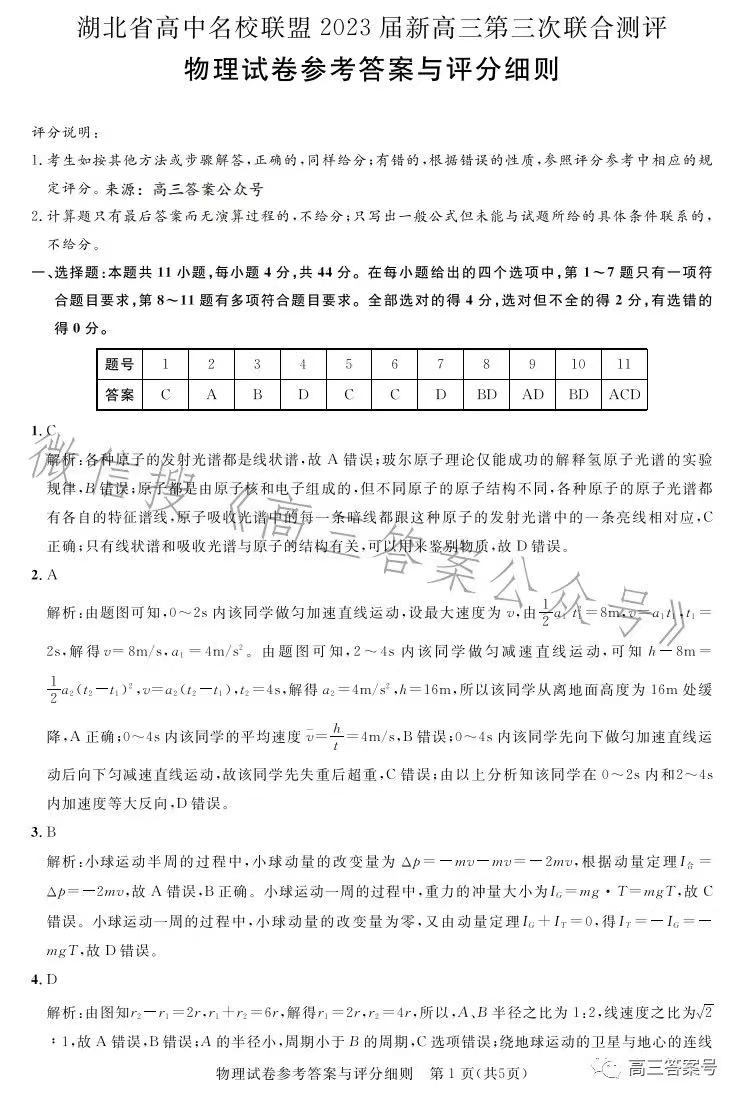 湖北省高中名校联盟 2023 届新高三第三次联合测评
物理试卷参考答案与评分细则
评分说明:
1. 考生如按其他方法或步骤解答,正确的,同样给分;有错的,根据错误的性质,参照评分参考中相应的规
定评分。来源:高三答案公众号
2. 计算题只有最后答案而无演算过程的,不给分;只写出一般公式但未能与试题所给的具体条件联系的,
不给分。
一、选择题:本题共 11 小题,每小题 4 分,共 44 分。在每小题给出的四个选项中,第 1~7 题只有一项符
合题目要求,第 8~11 题有多项符合题目要求。全部选对的得 4 分,选对但不全的得 2 分,有选错的
得 0 分。
题号 1 2 3 4 5 6 7 8 9 10 11
答案 C A B D C C D BD AD BD ACD
1. C
解析:各种原子的发射光谱都是线状谱,故 A 错误;玻尔原子理论仅能成功的解释氢原子光谱的实验
规律,B 错误;原子都是由原子核和电子组成的,但不同原子的原子结构不同,各种原子的原子光谱都
有各自的特征谱线,原子吸收光谱中的每一条暗线都跟这种原子的发射光谱中的一条亮线相对应,C
正确;只有线状谱和吸收光谱与原子的结构有关,可以用来鉴别物质,故 D 错误。
2. A
解析:由题图可知,0~2s 内该同学做匀加速直线运动,设最大速度为 v,由 1/2 a₁t₁²=8m,v=a₁t₁,t₁=
2s,解得 v=8m/s,a₁=4m/s²。由题图可知,2~4s 内该同学做匀减速直线运动,可知 h-8m=
1/2 a₂(t₂-t₁)²,v=a₂(t₂-t₁),t₂=4s,解得 a₂=4m/s²,h=16m,所以该同学从离地面高度为 16m 处缓
降,A 正确;0~4s 内该同学的平均速度 v̄=h/t=4m/s,B 错误;0~4s 内该同学先向下做匀加速直线运
动后向下匀减速直线运动,故该同学先失重后超重,C 错误;由以上分析知该同学在 0~2s 内和2~4s
内加速度等大反向,D 错误。
3. B
解析:小球运动半周的过程中,小球动量的改变量为 Δp=-mv-mv=-2mv,根据动量定理 I合=
Δp=-2mv,故 A 错误,B 正确。小球运动一周的过程中,重力的冲量大小为 I_G=mg·T=mgT,故 C
错误。小球运动一周的过程中,小球动量的改变量为零,又由动量定理 I_G+I_T=0,得 I_T=-I_G=-
mgT,故 D 错误。
4. D
解析:由图知r₂-r₁=2r,r₁+r₂=6r,解得r₁=2r,r₂=4r,所以,A、B 半径之比为 1:2,线速度之比为√2
:1,故 A 错误,B 错误;A 的半径小,周期小于 B 的周期,C 选项错误;绕地球运动的卫星与地心的连线
物理试卷参考答案与评分细则 第 1 页(共5页)
高三答案号
微信搜《高三答案公众号》